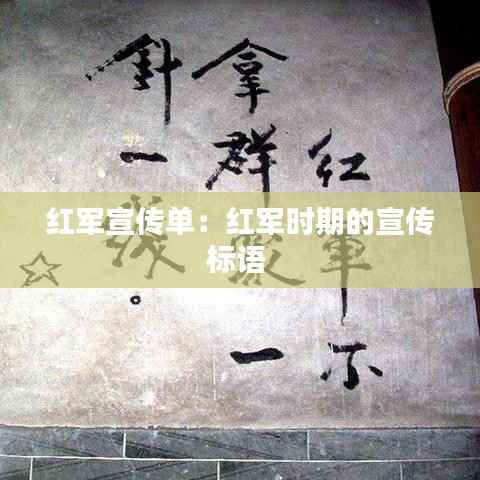 红军宣传单：红军时期的宣传
标语
红軍不
拿群一
針一。